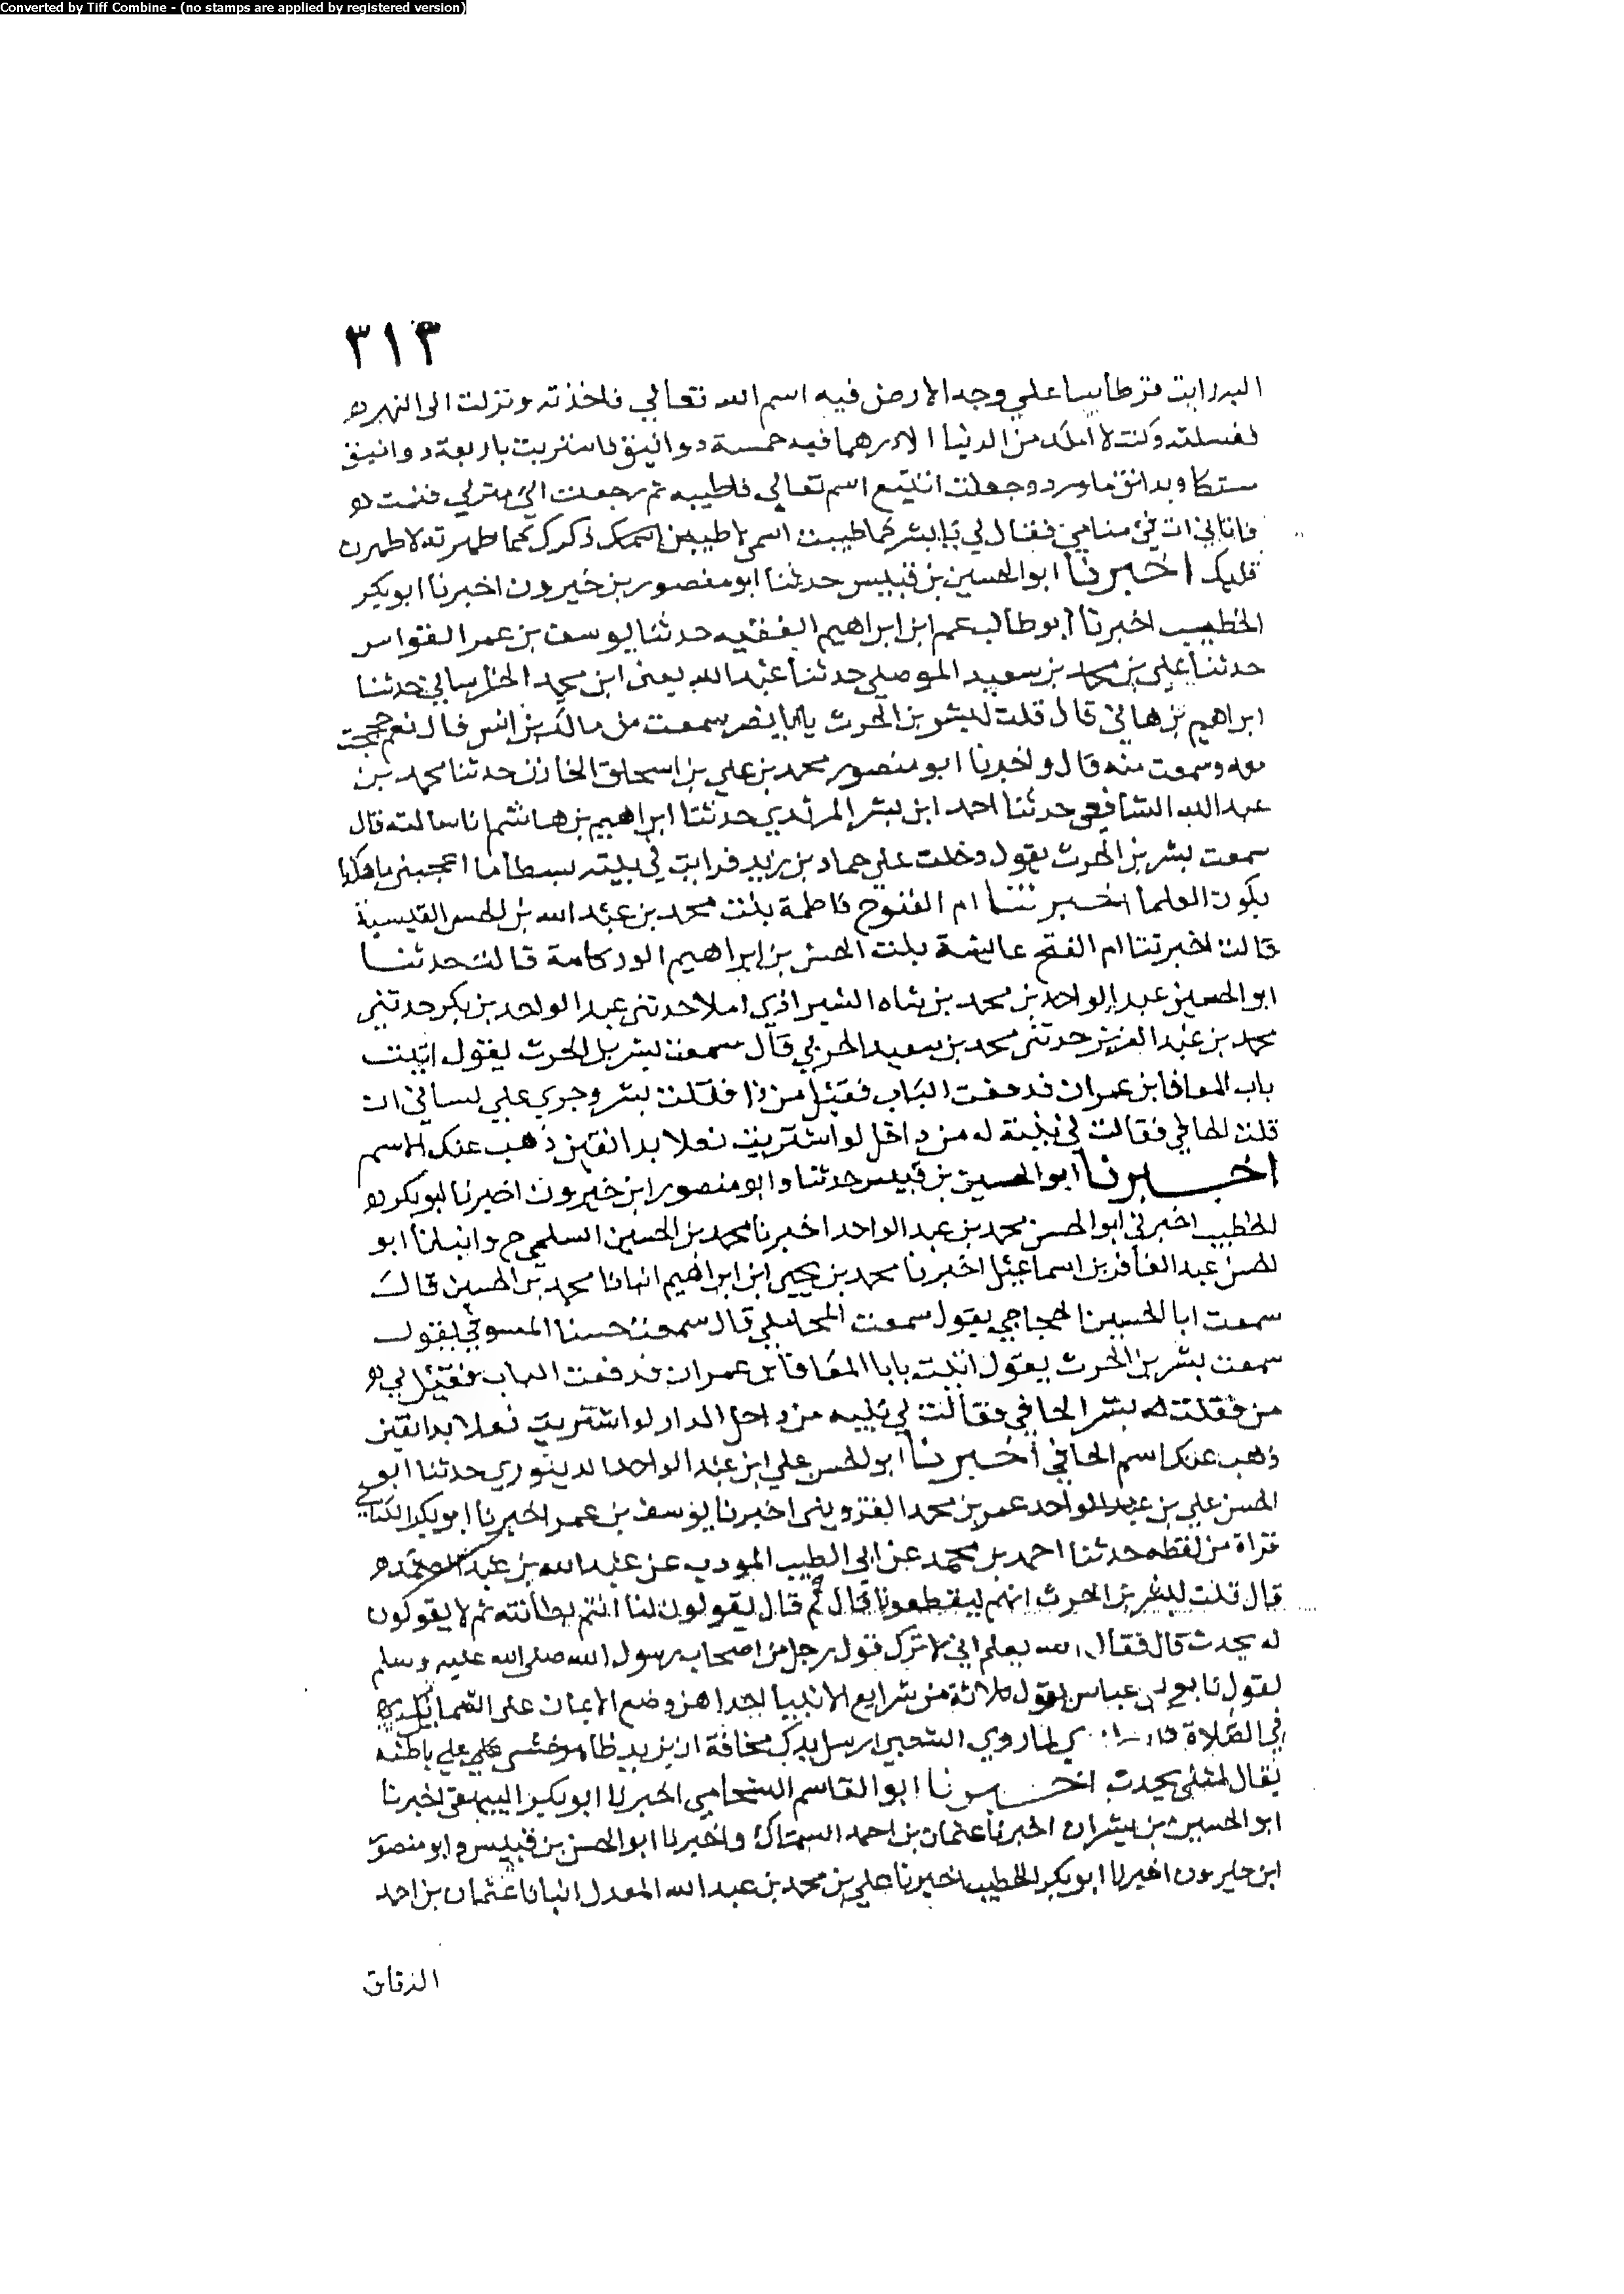 Converted by Tiff Combine - (no stamps are applied by registered version)
٣١٣
البدرايت قرطاسا علي وجه الارض فيه اسم الله تعالي فاخذته ونزلت الى النهر
فغسلته وكنت لا املك من الدنيا الا درهما فيه خمسة دوانيق فاشتريت باربعة دوانيق
مسكا وبدانق ماورد وجعلت اتتبع اسم تعالي فاطيبه ثم رجعت الي منزلي فنمت
فاتاني ات في منامي فقال لي يا بشر كما طيبت اسمي لاطيبن اسمك ذكرك كما طهرته لاطهرن
قلبك اخبرنا ابوالحسين بن قبيس حدثنا ابو منصور بن خيرون اخبرنا ابوبكر
الخطيب اخبرنا ابو طالب عمر ابن ابراهيم الفقيه حدثنا يوسف بن عمر القواس
حدثنا علي بن محمد بن سعيد الموصلي حدثنا عبد الله يعني ابن محمد الخراساني حدثنا
ابراهيم بن هاني قال قلت لبشر بن الحرث يا ابا نصر سمعت من مالك بن انس قال نعم حججت
معه وسمعت منه قال واخبرنا ابو منصور محمد بن علي بن اسحاق الخازن حدثنا محمد بن
عبد الله الشافعي حدثنا احمد ابن بشر المرثدي حدثنا ابراهيم بن هاشم انا سالته قال
سمعت بشر بن الحرث يقول دخلت علي حماد بن زيد فرايت في بيته بساطا ما اعجبني ما هكذا
يكون العلما اخبرتنا ام الفتوح فاطمة بنت محمد بن عبد الله بن الحسن القيسية
قالت اخبرتنا ام الفتح عايشة بنت الحسن بن ابراهيم الوركامة قالت حدثنا
ابو الحسين عبد الواحد بن محمد بن شاه الشيرازي املا حدثني عبد الواحد بن بكر حدثني
محمد بن عبد العزيز حدثني محمد بن سعيد الحربي قال سمعت بشر بن الحرث يقول اتيت
باب المعافا بن عمران فدققت الباب فقيل من ذا فقلت بشر وجري علي لساني ان
قلت الحافي فقالت لي بنية له من داخل لو اشتريت نعلا بدانقين ذهب عنك الاسم
اخبرنا ابو الحسين بن قبيس حدثنا وابو منصور ابن خيرون اخبرنا ابو بكر
الخطيب اخبرني ابو الحسن محمد بن عبد الواحد اخبرنا محمد بن الحسين السلمي ح وانبانا ابو
الحسن عبد الغافر بن اسماعيل اخبرنا محمد بن يحيى ابن ابراهيم انبانا محمد بن الحسين قال
سمعت ابا الحسين الحجاجي يقول سمعت المحاملي قال سمعت حسنا المسوحي يقول
سمعت بشر بن الحرث يقول اتيت باب المعافا بن عمران فدققت الباب فقيل لي
من فقلت له بشر الحافي فقالت لي بنيه من داخل الدار لو اشتريت نعلا بدانقين
ذهب عنك اسم الحافي اخبرنا ابو الحسن علي ابن عبد الواحد الدينوري حدثنا ابو
الحسن علي بن عبد الواحد عمر بن محمد القزويني اخبرنا يوسف بن عمر اخبرنا ابو بكر الكتاني
قراة من لفظه حدثنا احمد بن محمد عن ابي الطيب المودب عن عبد الله بن عبد الصمد
قال قلت لبشر بن الحرث انهم ليقطعونا قال ثم قال يقولون لنا انتم بطانته ثم لا يقولون
له يحدث قال فقال الله يعلم اني لا ترك قول رجل من اصحاب رسول الله صلى الله عليه وسلم
لقول تابعي عباس يقول ثلاثة من شرايع الانبيا احداهن وضع الايمان على الشمايل
في الصلاة لما روي الشعبي ارسل يدك مخافة ان يزيد ظاهر خشوعي علي باطنه
يقال لمثلي يحدث اخبرنا ابو القاسم الشحامي اخبرنا ابو بكر البيهقي اخبرنا
ابو الحسين بن بشران اخبرنا عثمان بن احمد السماك واخبرنا ابو الحسن بن قبيس وابو منصور
ابن خيرون اخبرنا ابو بكر الخطيب اخبرنا علي بن محمد بن عبد الله المعدل انبانا عثمان بن احمد
الدقاق